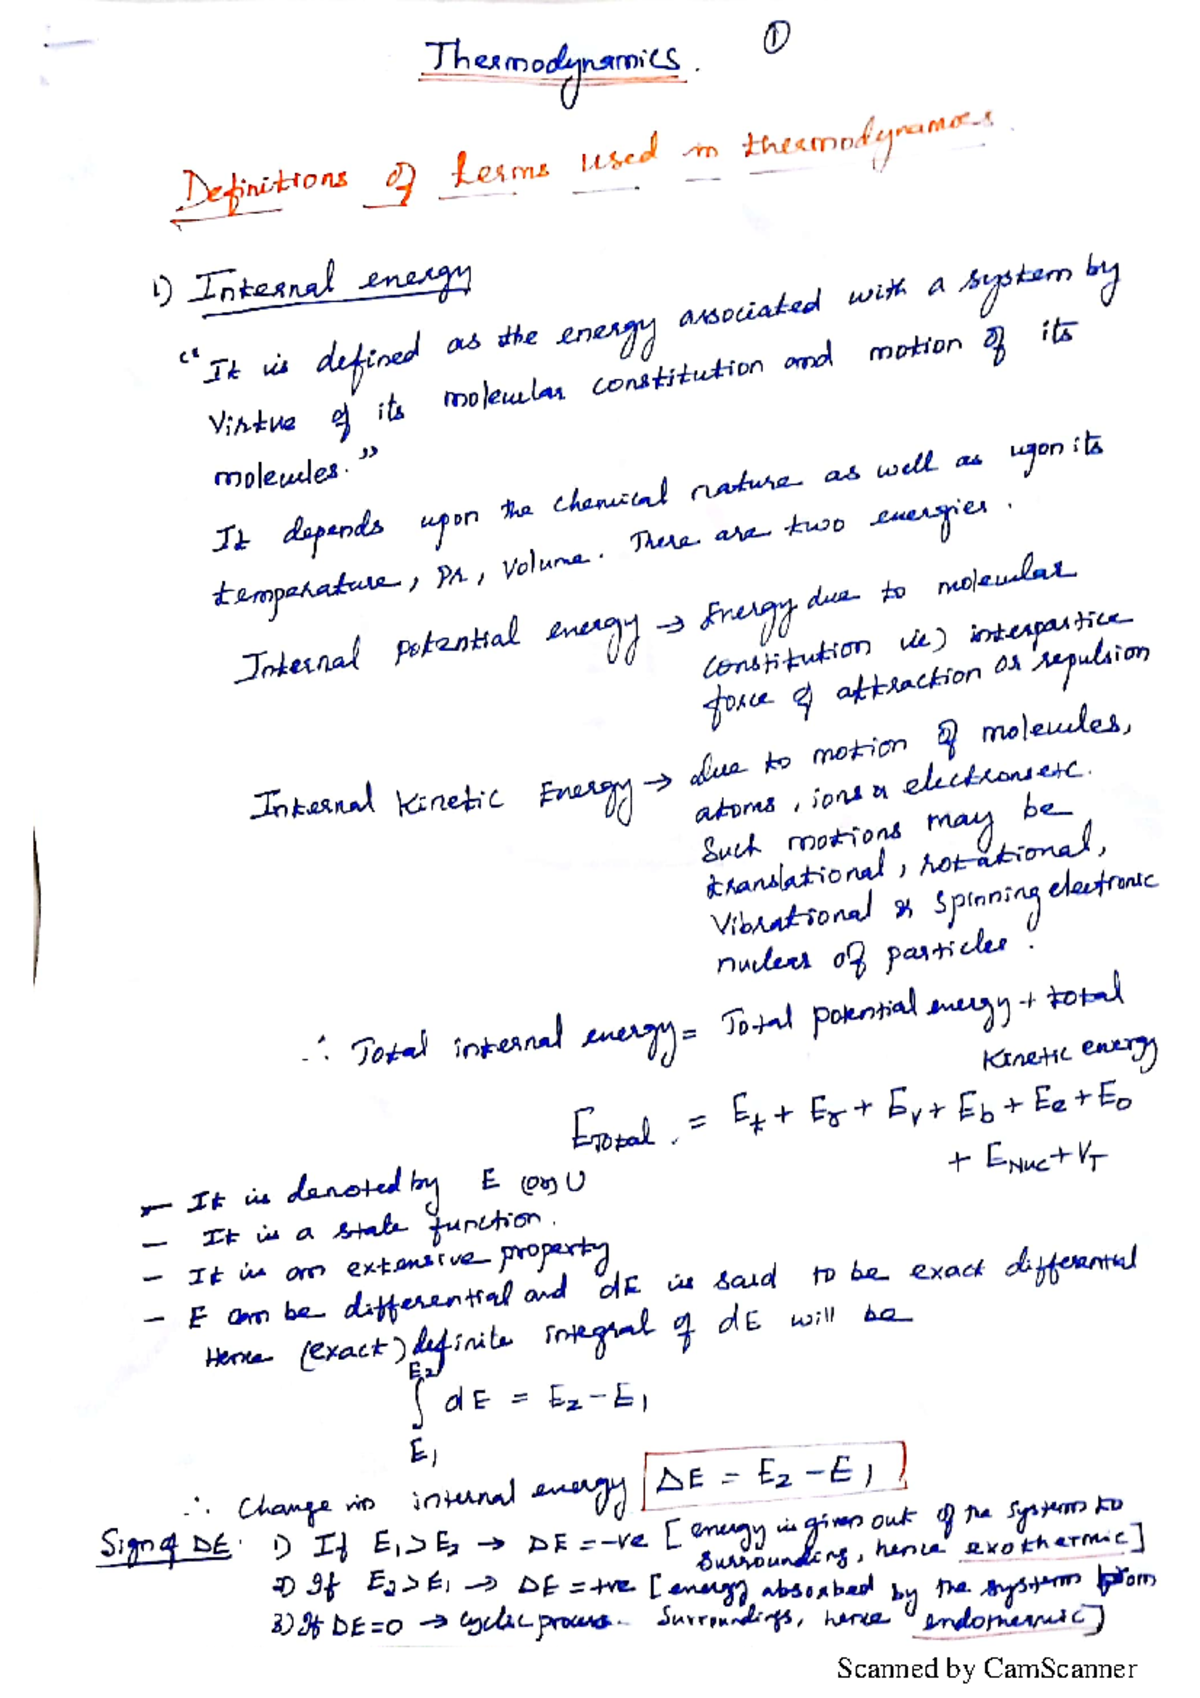 ①
Thermodynamics.
Definitions of terms used in thermodynamics.
1) Internal energy
"It is defined as the energy associated with a system by
virtue of its molecular constitution and motion of its
molecules."
It depends upon the chemical nature as well as upon its
temperature, Pr, Volume. There are two energies.
Internal potential energy → Energy due to molecular
constitution ie) interparticle
force of attraction or repulsion
Internal Kinetic Energy → due to motion of molecules,
atoms, ions & electrons etc.
Such motions may be
translational, rotational,
Vibrational & spinning electronic
nuclear of particles.
∴ Total internal energy = Total potential energy + total
Kinetic energy
E_Total. = E_t + E_r + E_v + E_b + E_e + E_0
+ E_Nuc + V_T
- It is denoted by E (or) U
- It is a state function.
- It is an extensive property
- E can be differential and dE is said to be exact differential
Hence (exact) definite integral of dE will be
∫_{E1}^{E2} dE = E2 - E1
∴ Change in internal energy ΔE = E2 - E1
Sign of ΔE. 1) If E1 > E2 → ΔE = -ve [energy is given out of the system to
surrounding, hence exothermic]
2) If E2 > E1 → ΔE = +ve [energy absorbed by the system from
surroundings, hence endothermic]
3) If ΔE = 0 → cyclic process.
Scanned by CamScanner